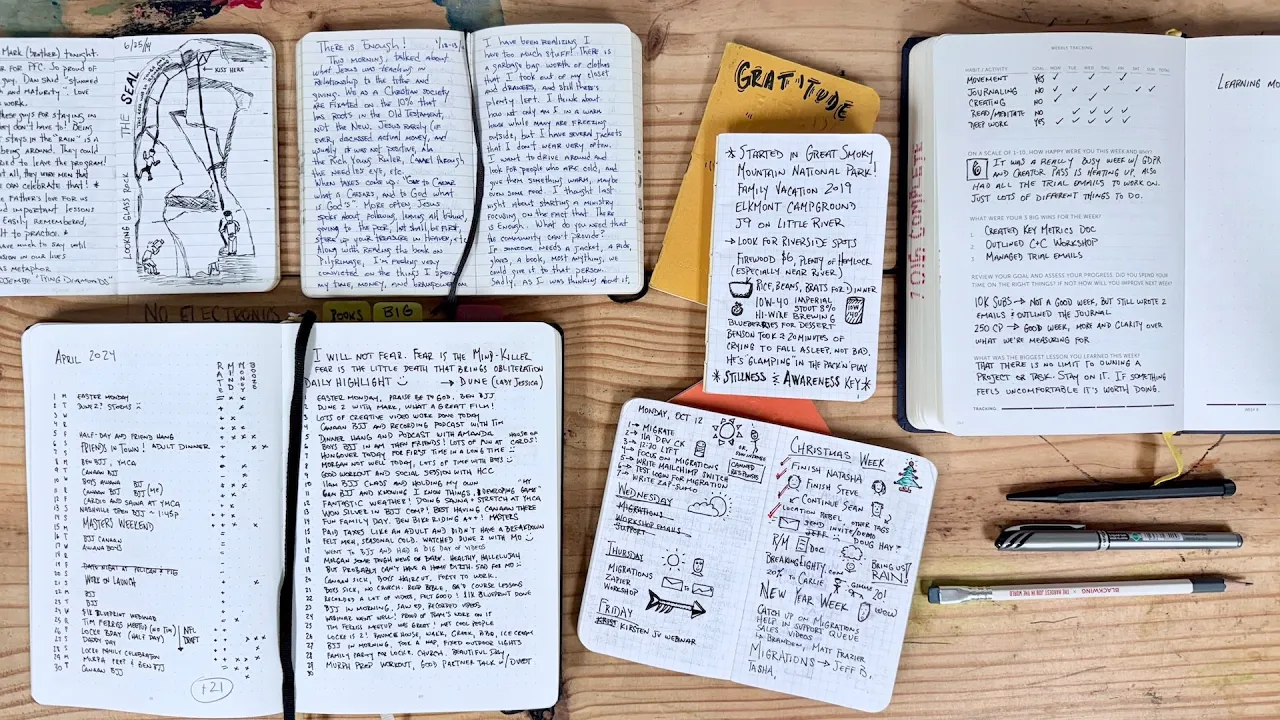 MARK (BROTHER) THOUGHT.
FOR PFC. SO PROUD OF
GUY. DAN SAID "STUNNED
AND MATURITY". LOVE
WORK.
THESE GUYS FOR STAYING IN
THEY DON'T HAVE TO! BEING
STAYS IN THE "RAIN" IS
BEING AROUND. THEY COULD
TO LEAVE THE PROGRAM!
ALL, THEY WERE MEN THAT
CAN CELEBRATE THAT!
FATHER'S LOVE FOR US
IMPORTANT LESSONS
EASILY REMEMBERED,
TO PRACTICE.
HAVE MUCH TO SAY UNTIL
IN OUR LIVES
AS METAPHOR
6/25/14
THE SEAL
KISS HERE
LOOKING GLASS ROCK
THERE IS ENOUGH!
THIS MORNING, TALKED ABOUT
WHAT JESUS WAS TEACHING IN
RELATIONSHIP TO THE TITHE AND
GIVING. WE AS A CHRISTIAN SOCIETY
ARE FIXATED ON THE 10% THAT
HAS ROOTS IN THE OLD TESTAMENT,
NOT THE NEW. JESUS RARELY (IF
EVER) DISCUSSED ACTUAL MONEY, AND
WHEN IT WAS NOT POSITIVE, ALA
THE RICH YOUNG RULER, CAMEL THROUGH
THE NEEDLES EYE, ETC.
GOD'S". MORE OFTEN, JESUS
SPOKE ABOUT FOLLOWING, LEAVING ALL BEHIND,
GIVING TO THE POOR, LAST SHALL BE FIRST,
STORE UP YOUR TREASURE IN HEAVEN, ETC
AND WITH READING THIS BOOK ON
PILGRIMAGE, I'M FEELING VERY
CONVICTED ON THE THINGS I SPEND
MY TIME, MONEY, AND
I HAVE BEEN REALIZING I
HAVE TOO MUCH STUFF! THERE IS
A GARBAGE BAG WORTH OF CLOTHES
THAT I TOOK OUT OF MY CLOSET
AND DRAWERS, AND STILL THERE'S
PLENTY LEFT. I THINK ABOUT
HOW NOT ONLY AM I IN A WARM
HOUSE WHILE MANY ARE FREEZING
OUTSIDE, BUT I HAVE SEVERAL JACKETS
THAT I DON'T WEAR VERY OFTEN.
I WANT TO DRIVE AROUND AND
LOOK FOR PEOPLE WHO ARE COLD, AND
GIVE THEM SOMETHING WARM, MAYBE
EVEN SOME FOOD. I THOUGHT LAST
NIGHT ABOUT STARTING A MINISTRY
FOCUSING ON THE FACT THAT THERE
IS ENOUGH. WHAT DO YOU NEED THAT
THE COMMUNITY CAN'T PROVIDE?
IF SOMEONE NEEDS A JACKET, A RIDE,
SHOES, A BOOK, MOST ANYTHING, WE
COULD GIVE IT TO THAT PERSON.
SADLY, AS I WAS THINKING ABOUT IT,
GRATITUDE
* STARTED IN GREAT SMOKY
MOUNTAIN NATIONAL PARK!
FAMILY VACATION 2019
ELKMONT CAMPGROUND
J9 ON LITTLE RIVER
→ LOOK FOR RIVERSIDE SPOTS
FIREWOOD $6, PLENTY OF HEMLOCK
(ESPECIALLY NEAR RIVER)
RICE, BEANS, BRATS FOR DINNER
10W-40 IMPERIAL
STOUT 8%
HI-WIRE BREWING
BLUEBERRIES FOR DESSERT
BENSON TOOK 220 MINUTES OF
CRYING TO FALL ASLEEP, NOT BAD.
HE'S "GLAMPING" IN THE PACK'N'PLAY
* STILLNESS & AWARENESS KEY *
WEEKLY TRACKING
HABIT / ACTIVITY GOAL MON TUE WED THU FRI SAT SUN TOTAL
MOVEMENT YES ✓ ✓
JOURNALING NO ✓ ✓ ✓ ✓ ✓
CREATING NO ✓
READ/MEDITATE NO ✓ ✓ ✓ ✓
DEEP WORK YES ✓ ✓ ✓ ✓ ✓
ON A SCALE OF 1-10, HOW HAPPY WERE YOU THIS WEEK AND WHY?
6 IT WAS A REALLY BUSY WEEK W/ GDPR
AND CREATOR PASS IS HEATING UP. ALSO
HAD ALL THE TRIAL EMAILS TO WORK ON.
JUST LOTS OF DIFFERENT THINGS TO DO.
WHAT WERE YOUR 3 BIG WINS FOR THE WEEK?
1 CREATED KEY METRICS DOC
2 OUTLINED C+C WORKSHOP
3 MANAGED TRIAL EMAILS
REVIEW YOUR GOAL AND ASSESS YOUR PROGRESS. DID YOU SPEND YOUR
TIME ON THE RIGHT THINGS? IF NOT HOW WILL YOU IMPROVE NEXT WEEK?
10K SUBS → NOT A GOOD WEEK, BUT STILL WROTE 2
EMAILS + OUTLINED THE JOURNAL
250 CP → GOOD WEEK, MORE AND CLARITY OVER
WHAT WE'RE MEASURING FOR
WHAT WAS THE BIGGEST LESSON YOU LEARNED THIS WEEK?
THAT THERE IS NO LIMIT TO OWNING A
PROJECT OR TASK. STAY ON IT. IF SOMETHING
FEELS UNCOMFORTABLE IT'S WORTH DOING.
TRACKING:
LEARNING MO
NO ELECTRONICS
BOOKS
BIG
APRIL 2024
RATE
MIND
MONEY
BOOZE
EASTER MONDAY
DUNE 2! STORMS
HALF-DAY AND FRIEND HANG
FRIENDS IN TOWN! ADULT DINNER
BEN BJJ, YMCA
CANAAN BJJ
BOYS AWANA BJJ
CANAAN BJJ BJJ (ME)
CARDIO AND SAUNA AT YMCA
NASHVILLE OPEN BJJ ~ 1:45P
MASTERS WEEKEND
BJJ CANAAN
AWANA BENS
WORK ON LAUNCH
BJJ
BJJ
$1K BLUEPRINT WEBINAR
TIM FERRISS MEETUP (NO TIM)
LOCKE BDAY (HALF DAY)
NFL DRAFT
DADDY DAY
LOCKE FAMILY CELEBRATION
MURPH PREP & BEN BJJ
CANAAN BJJ
+21
I WILL NOT FEAR. FEAR IS THE MIND-KILLER
FEAR IS THE LITTLE DEATH THAT BRINGS OBLITERATION
DAILY HIGHLIGHT → DUNE (LADY JESSICA)
EASTER MONDAY, PRAISE BE TO GOD. BEN BJJ
DUNE 2 WITH MARK, WHAT A GREAT FILM!
LOTS OF CREATIVE VIDEO WORK DONE TODAY
CANAAN BJJ AND RECORDING PODCAST WITH TIM
DINNER HANG AND PODCAST WITH AMANDA
BOYS BJJ IN AM, THEN FRIENDS! LOTS OF FUN AT HOUSE OF CARDS!
HUNGOVER TODAY FOR FIRST TIME IN A LONG TIME
MORGAN NOT WELL TODAY, LOTS OF TIME WITH BOYS
GOOD WORKOUT AND SOCIAL SESSION WITH HCC
11AM BJJ CLASS AND HOLDING MY OWN
GAN BJJ AND KNOWING I KNOW THINGS, "MY DEVELOPING GAME"
FANTASTIC WEATHER! DOING SAUNA + STRETCH AT YMCA
WON SILVER IN BJJ COMP! BEST HAVING CANAAN THERE
FUN FAMILY DAY. BEN BIKE RIDING A++! MASTERS
PAID TAXES LIKE AN ADULT AND DIDN'T HAVE A BREAKDOWN
FELT MEH, SEASONAL COLD. WATCHED DUNE 2 WITH MO
WENT TO BJJ AND HAD A BIG DAY OF VIDEOS
CANAAN SICK, BOYS HAIRCUT, FORTE TO WORK.
RECORDED A LOT OF VIDEOS, FELT GOOD! $1K BLUEPRINT DONE
BJJ IN MORNING, SAWED, RECORDED VIDEOS
WEBINAR WENT WELL! PROUD OF TEAM'S WORK ON IT
TIM FERRISS MEETUP WAS GREAT! MET COOL PEOPLE
LOCKE IS 2! BOUNCE HOUSE, WALK, CREEK, BBQ, ICE CREAM
BJJ IN MORNING, TOOK A NAP, FIXED OUTDOOR LIGHTS
FAMILY PARTY FOR LOCKE. CHURCH. BEAUTIFUL DAY
MURPH PREP WORKOUT, GOOD PARTNER TALK W/
MONDAY, OCT 12
1→ MIGRATE
3→ 12:20 LIFT
4→ FOCUS ON MIGRATIONS
5→ WRITE MAILCHIMP SWITCH
→ TEST LOGIN FOR MIGRATION
WRITE ZAP-SUMO
CANNED RESPONSES
WEDNESDAY
MIGRATIONS
WORKSHOP EMAILS
SUPPORT
THURSDAY
MIGRATIONS
ZAPIER
WORKSHOP
FRIDAY
KIRSTEN JV WEBINAR
CHRISTMAS WEEK
FINISH NATASHA
FINISH STEVE
CONTINUE SEAN
LOCATION REBEL OTHER TAGS
SEND INVITE/DEMO
JEFF DOUG HAY
R/M DOC
BRING US RAIN!
20% TO CARLIE
GUMM 20!
NEW YEAR WEEK
WOW
CATCH UP ON MIGRATIONS
HELP IN SUPPORT QUEUE
SALES VIDEOS
↳ BRANDEN, MATT FRAZIER
MIGRATIONS → JEFF B.
TASHA,
BLACKWING × THE HARDEST JOB IN THE WORLD